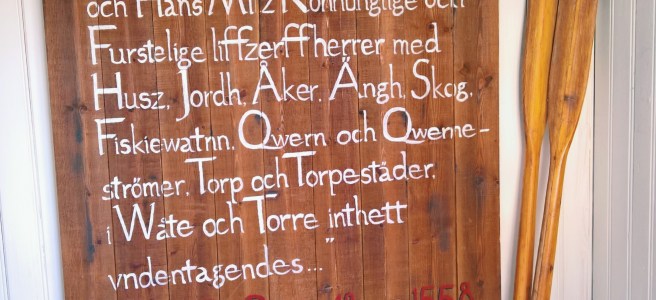 och Hans
Furstelige liffzerffherrer med
Husz, Jordh, Åker, Ängh, Skog,
Fiskiewatnn, Qwern och Qwerne-
strömer, Torp och Torpestäder,
i Wåte och Torre inthett
vndentagendes..."